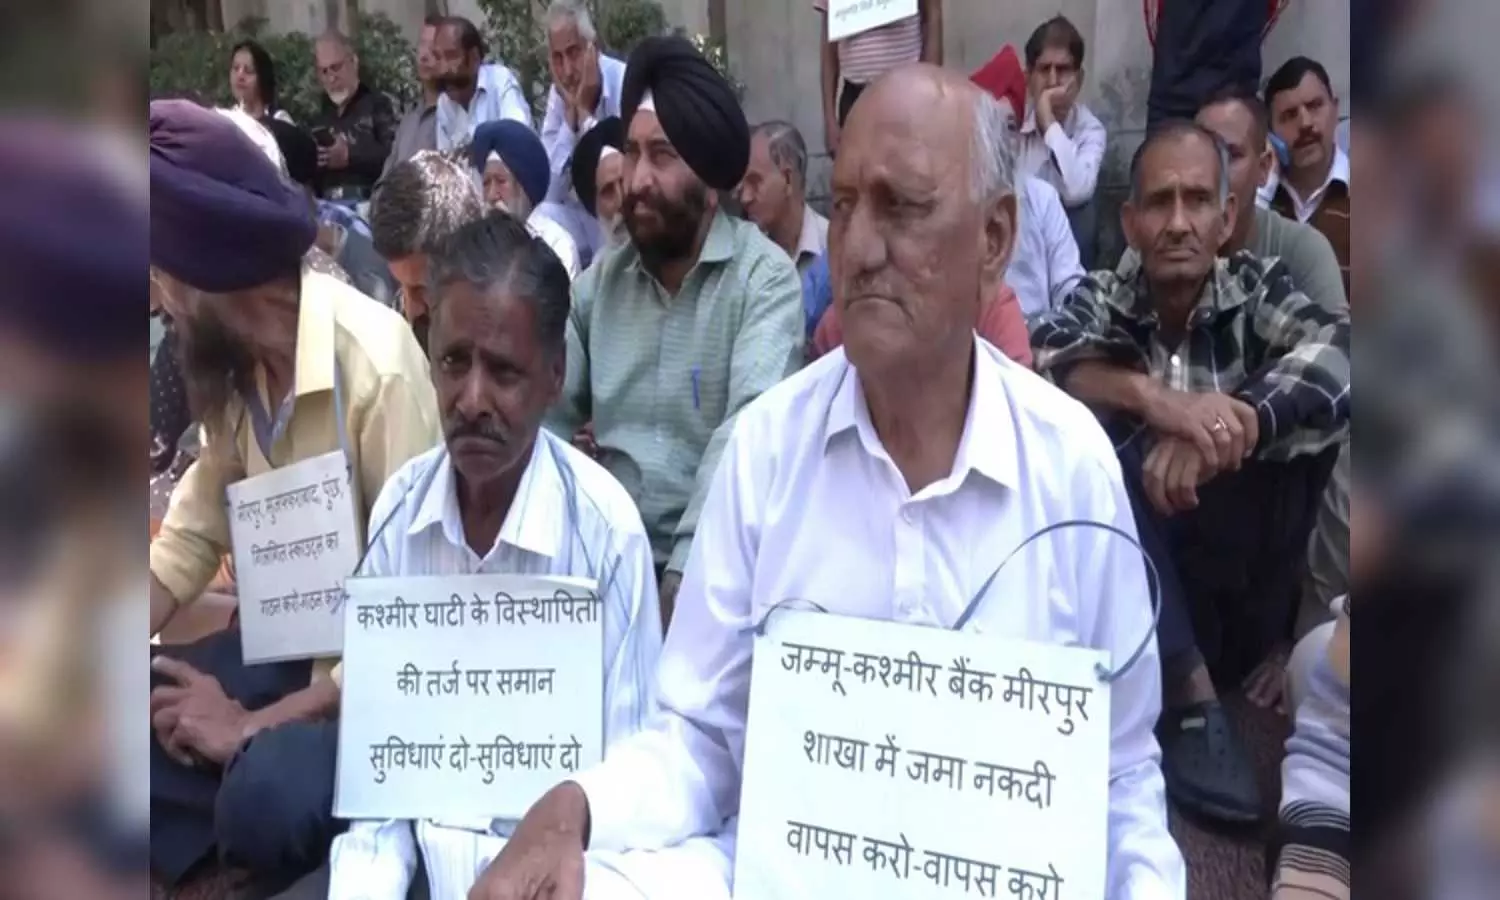 मीरपुर, मुजफ्फराबाद, पुंछ,
गिलगित स्काउट्स का
गठन करो-गठन करो
कश्मीर घाटी के विस्थापितों
की तर्ज पर समान
सुविधाएं दो-सुविधाएं दो
जम्मू-कश्मीर बैंक मीरपुर
शाखा में जमा नकदी
वापस करो-वापस करो